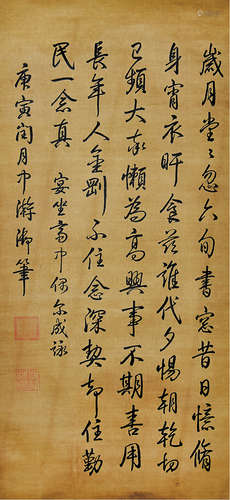 歲月堂〻忽六旬書窓昔日憶脩
身宵衣旰食茲誰代夕惕朝乾切
已頻大懶為高興事不期善用
長年人金剛不住念深契却住勤
民一念真 宴坐齋中偶尔成詠
庚寅閏月中澣御筆